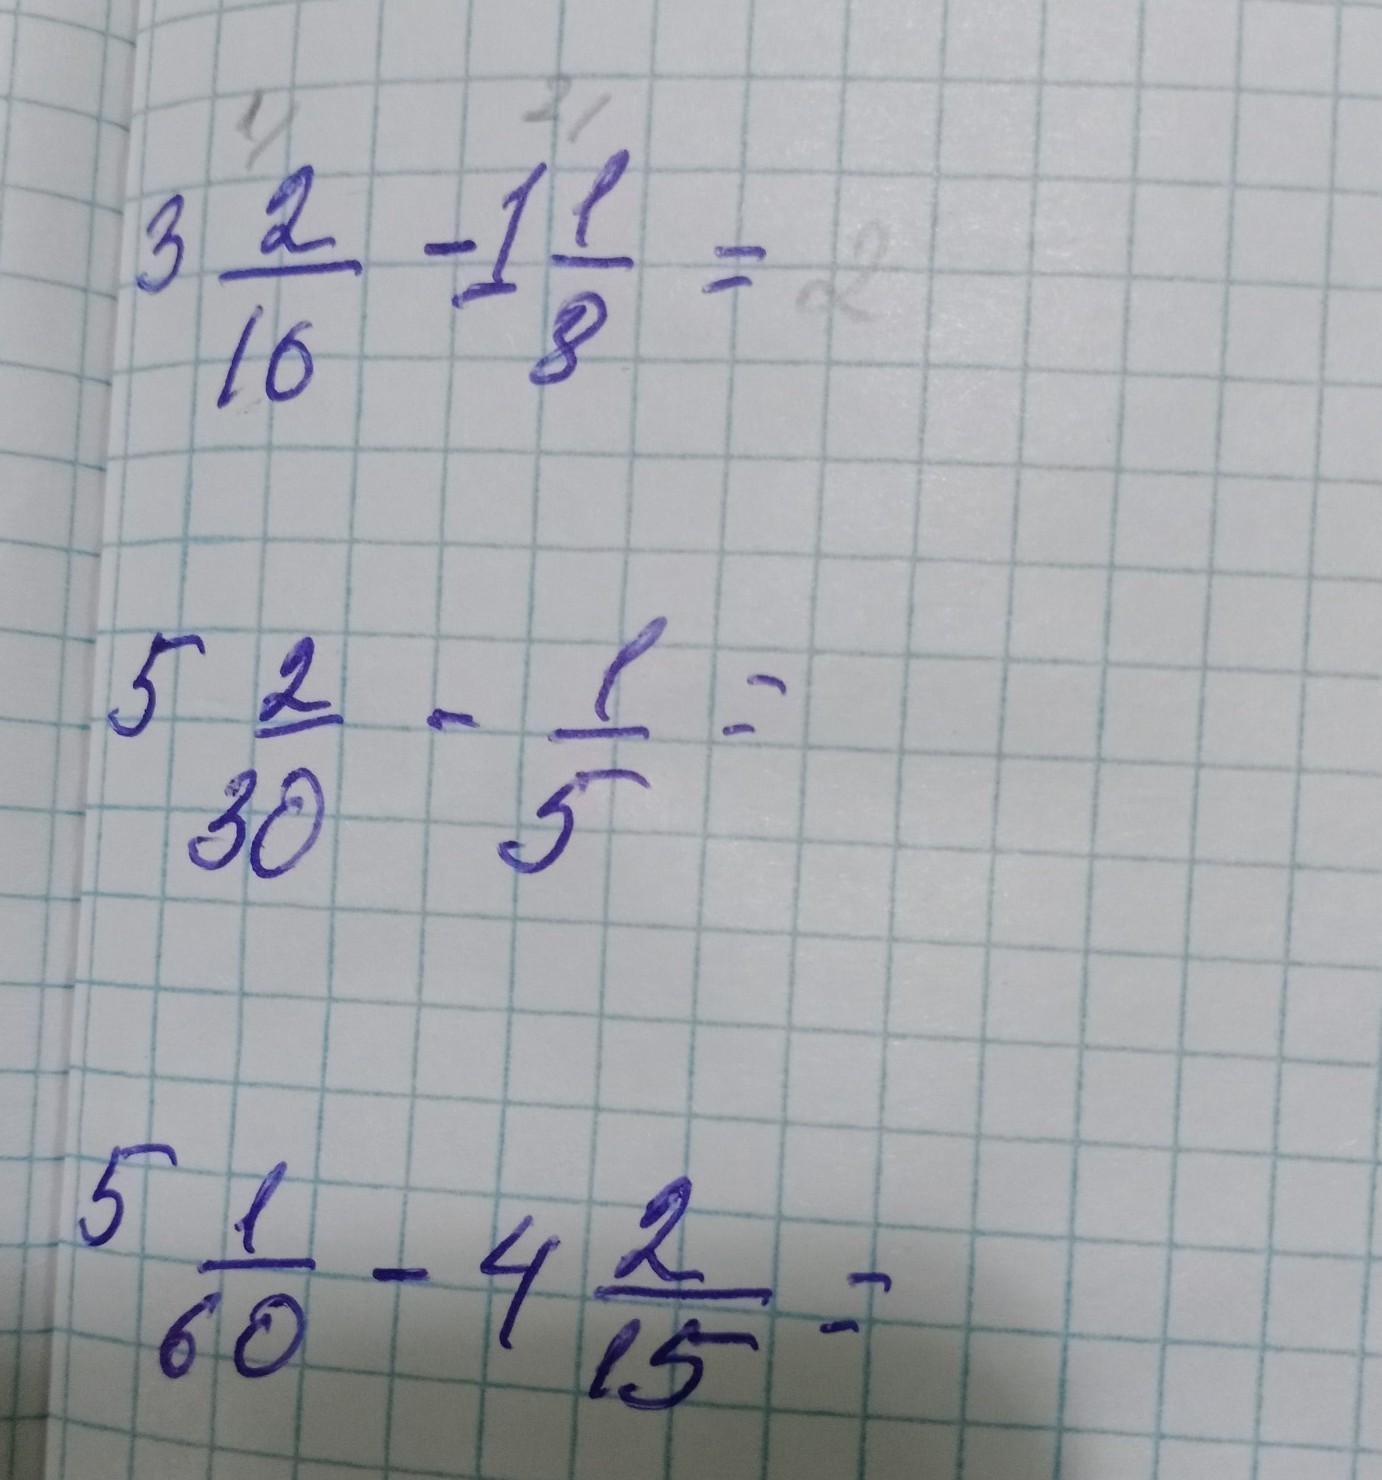 1) 2)
3 2/16 - 1 1/8 = 2
5 2/30 - 1/5 =
5 1/60 - 4 2/15 =